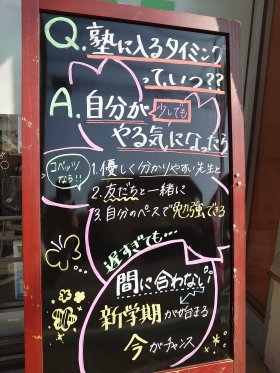 Q. 塾に入るタイミング
っていつ??
A. 自分が少しでも
やる気になったら
コベッツ
なら!!
1. 優しく分かりやすい先生と
2. 友だちと一緒に
3. 自分のペースで勉強できる
遅すぎても…
間に合わない
新学期が始まる
今がチャンス